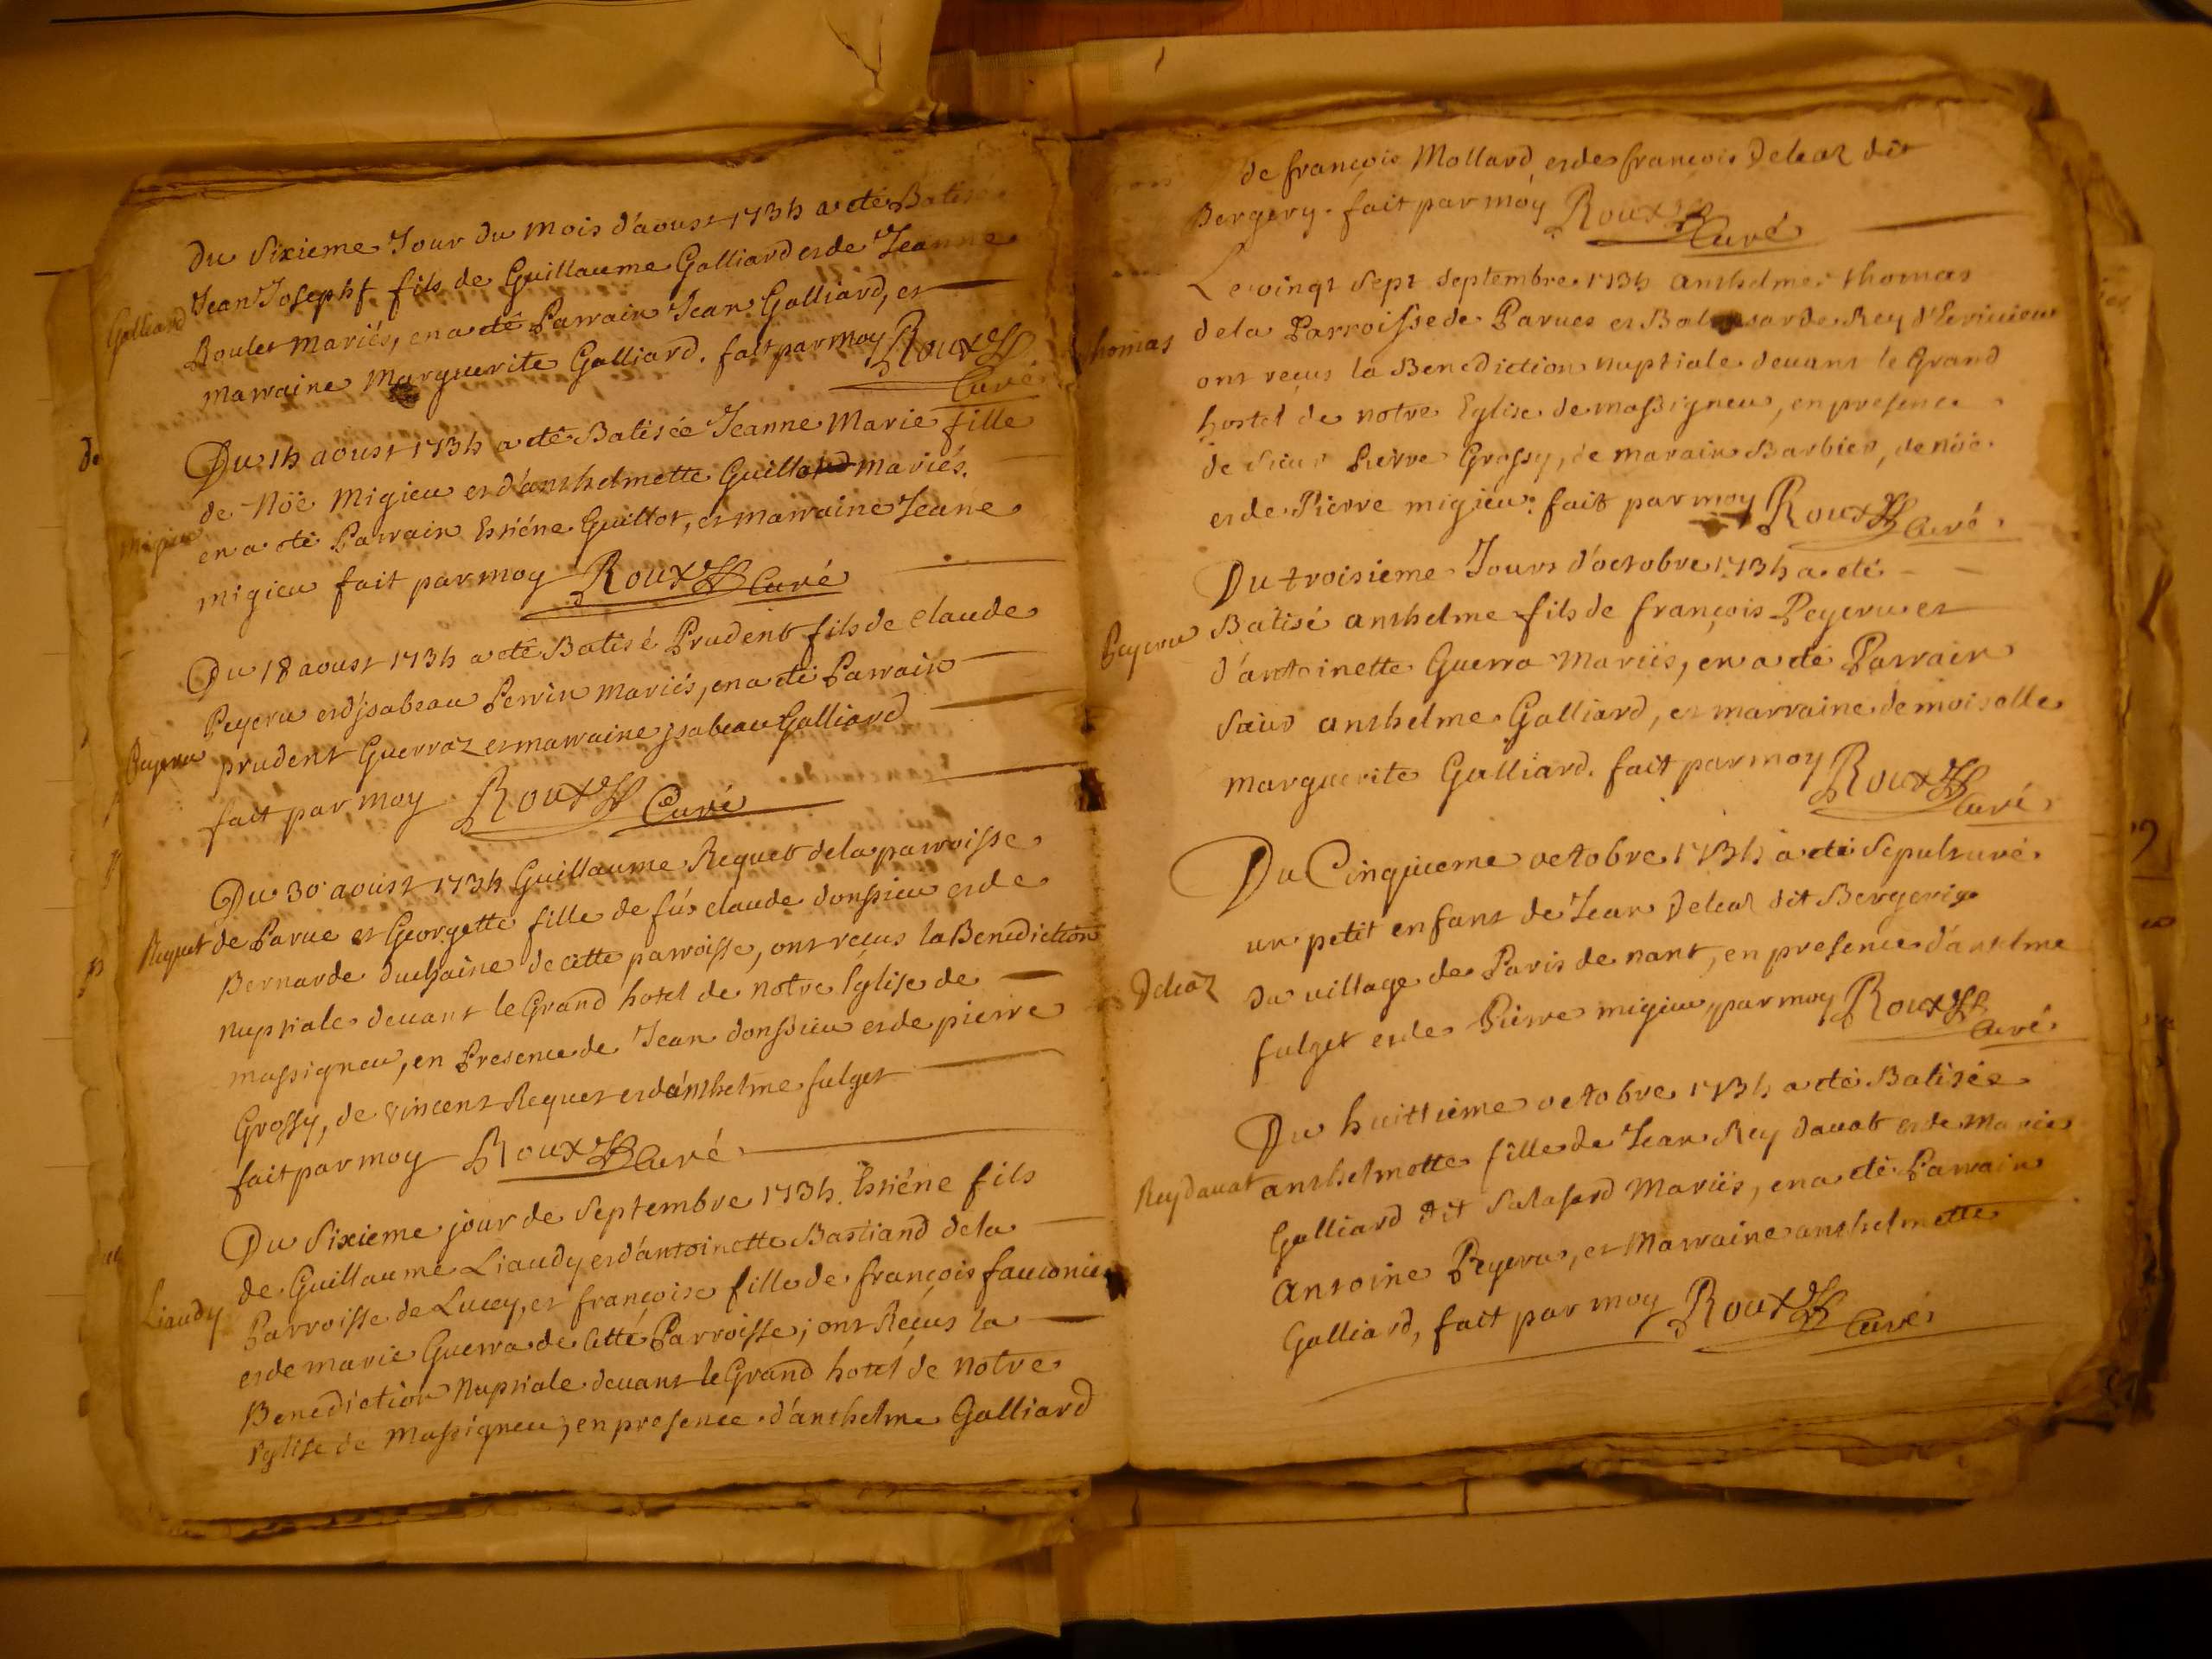 Du Sixieme Jour Du Mois d'aoust 1734 a eté Batisé
Galliard Jean Josephf fils de Guillaume Galliard et de Jeanne
Roulet mariés, en a eté Parrain Jean Galliard, et
marraine Marguerite Galliard. fait par moy Roux
Curé
Du 14 aoust 1734 a eté Batisée Jeanne Marie fille
de Nöe Migieu et d'anthelmette Guillot mariés.
migieu en a eté Parrain Estiéne Guillot, et marraine Jeane
migieu fait par moy Roux Curé
Du 18 aoust 1734 a eté Batisé Prudent fils de Claude
Peyeru et d'jsabeau Perrin mariés, en a eté Parrain
Peyeru prudent Guerraz et marraine jsabeau Galliard
fait par moy Roux Curé
Du 30 aoust 1734 Guillaume Requet de la parroisse
Requet de Parue et Georgette fille de fú claude donssieu et de
Bernarde duchaine de cette parroisse, ont reçus la Benediction
nuptiale devant le Grand hotel de notre Eglise de
massigneu, en Presence de Jean donssieu et de pierre
Grossy, de vincent Requet et d'anthelme fulget
fait par moy Roux Curé
Du Sixieme jour de Septembre 1734. Estiéne fils
de Guillaume Liaudy et d'antoinette Bastiand de la
Liaudy Parroisse de Lucey, et françoise fille de françois fauconier
et de marie Guerra de Cette Parroisse, ont Reçus la
Benediction Nuptiale devant le Grand hotel de notre
Eglise de massigneu, en presence d'anthelme Galliard
de françois Mollard et de françois Deleaz dit
Bergery. fait par moy Roux
Curé
Le vingt Sept Septembre 1734 anthelme thomas
thomas de la Parroisse de Parues et Rey
ont reçus la Benediction nuptiale devant le Grand
hostel de notre Eglise de massigneu, en presence
de Sieur Pierre Grossy, de marain Barbier, de nöe
et de Pierre migieu: fait par moy Roux Curé
Du troisieme Jours d'octobre 1734 a eté
Peyeru Batisé anthelme fils de françois Peyeru et
d'antoinette Guerra Mariés, en a eté Parrain
anthelme Galliard, et marraine demoiselle
marguerite Galliard. fait par moy Roux
Curé
Du Cinquieme octobre 1734 a eté Sepulturé
un petit enfant de Jean Deleaz dit Bergerig
Deleaz du village de Paris de nant, en presence d'anthelme
fulget et de Pierre migieu, par moy Roux
Curé
Du huittieme octobre 1734 a eté Batisée
Reydavat anthelmette fille de Jean Rey davat et de Marie
Galliard dit Mariés, en a eté Parrain
Antoine Peyeru, et Marraine anthelmette
Galliard, fait par moy Roux Curé